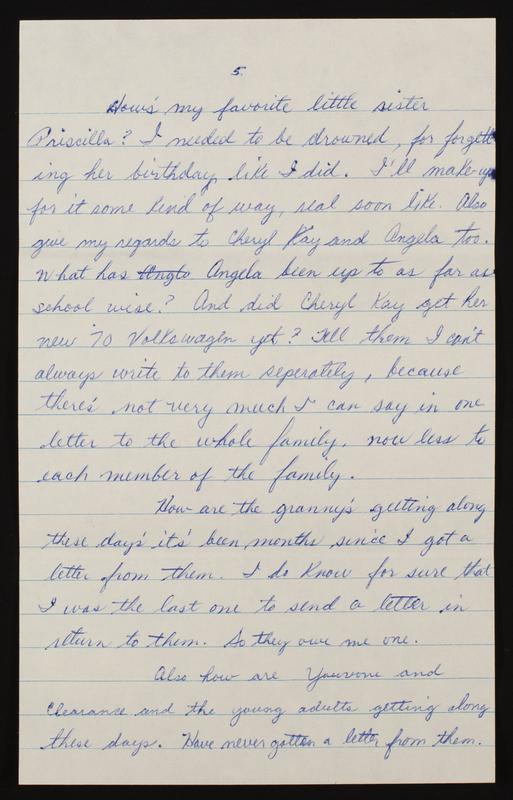 5.
How's my favorite little sister
Priscilla? I needed to be drowned, for forgett-
ing her birthday like I did. I'll make-up
for it some kind of way, real soon like. Also
give my regards to Cheryl Kay and Angela too.
What has Anglo Angela been up to as far as
school wise? And did Cheryl Kay get her
new '70 Volkswagen yet? Tell them I can't
always write to them seperately, because
there's not very much I can say in one
letter to the whole family, now less to
each member of the family.
How are the granny's getting along
these day's it's been months since I got a
letter from them. I do know for sure that
I was the last one to send a letter in
return to them. So they owe me one.
Also how are and
Clearance and the young adults getting along
these days. Have never gotten a letter from them.